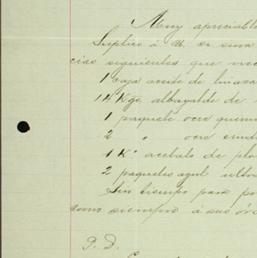 Muy apreciable
Suplico á U. se sirva
cias siguientes que nece
1 caja aceite de linaza
14 Kgs albayalde de
1 paquete ocre quem
2 " ocre crud
1 Kº acetato de plo
2 paquetes azul ultra
Sin tiempo para po
como siempre á sus ór
P. D.